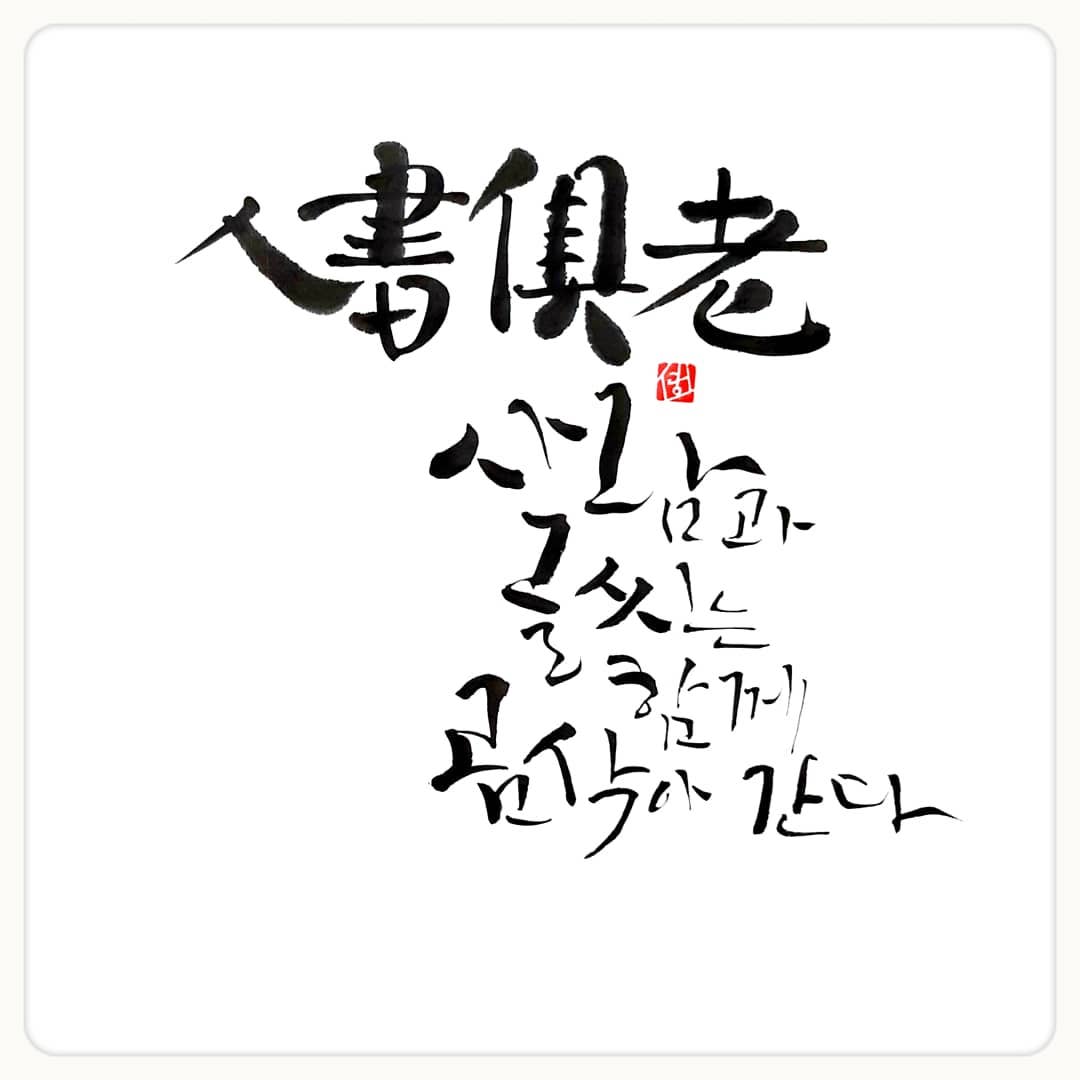 人書俱老
사람과
글씨는
함께
곰삭아 간다